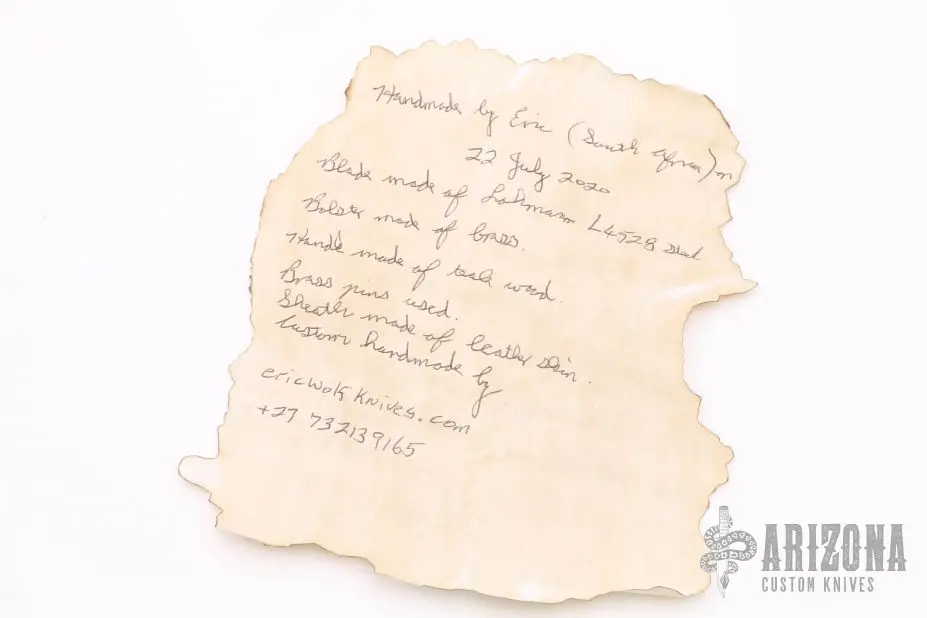 Handmade by Eric (South Africa) on
22 July 2020
Blade made of Lohmann L4528 steel
Bolster made of brass.
Handle made of teak wood.
Brass pins used.
Sheath made of leather skin.
Custom handmade by
ericwolfknives.com
+27 732139165
ARIZONA
CUSTOM KNIVES